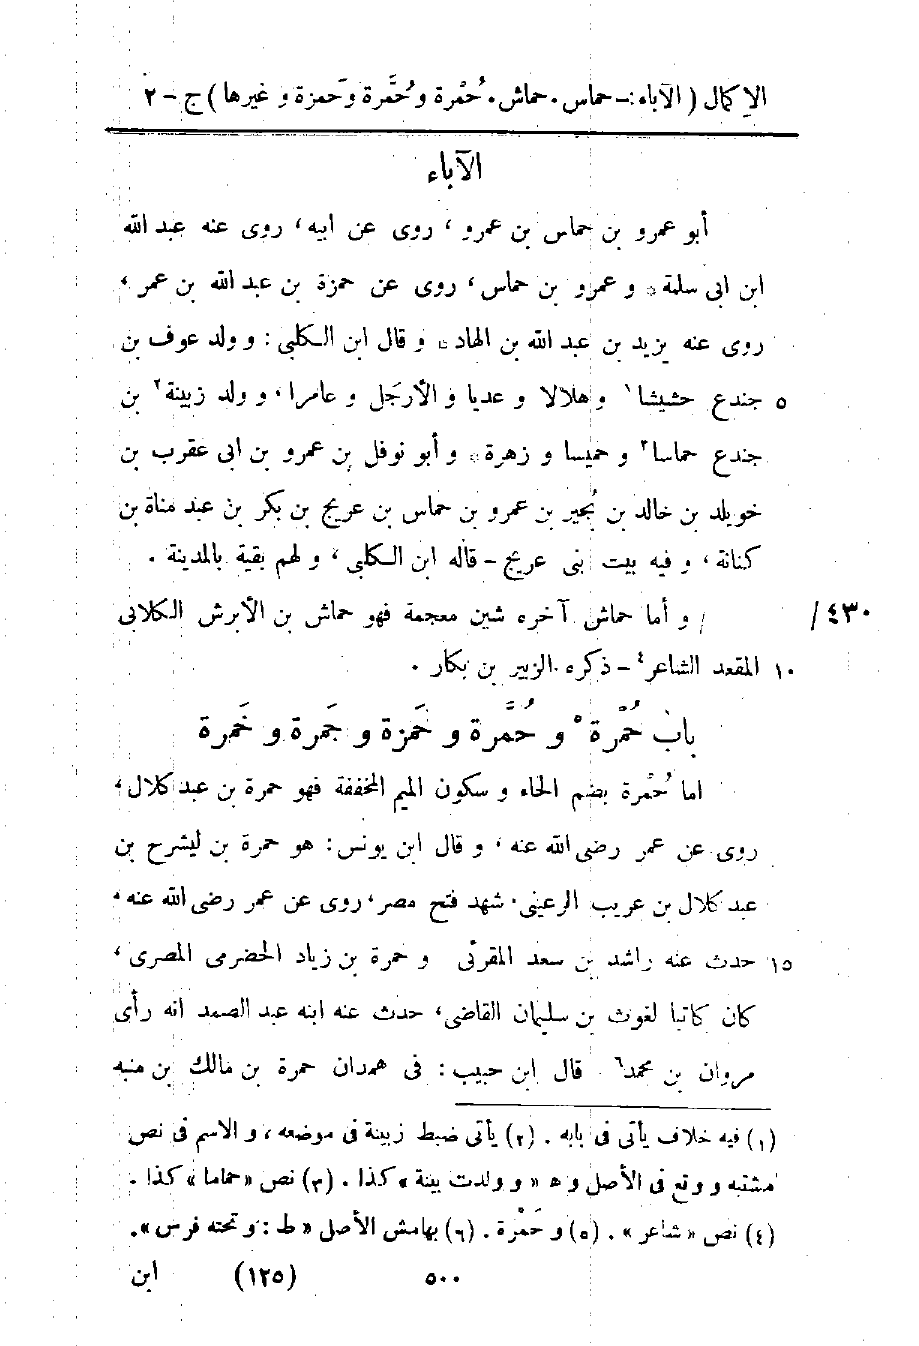 الإكمال ( الآباء :- حماس . حماش . حُمْرة وحُمَّرة وحَمزة و غيرها ) ج - ٢
الآباء
أبو عمرو بن حماس بن عمرو ، روى عن ابيه ، روى عنه عبد الله
ابن ابى سلمة * و عمرو بن حماس ، روى عن حمزة بن عبد الله بن عمر ،
روى عنه يزيد بن عبد الله بن الهاد * و قال ابن الكلبي : و ولد عوف بن
٥ جندع حشيشا ١ و هلالا و عديا و الأرجَل و عامرا ، و ولد زبينة ٢ بن
جندع حماسا ٣ و حميسا و زهرة * و أبو نوفل بن عمرو بن ابى عقرب بن
خويلد بن خالد بن بُجير بن عمرو بن حماس بن عريج بن بكر بن عبد مناة بن
كنانة ، و فيه بيت بنى عريج - قاله ابن الكلبي ، و لهم بقية بالمدينة .
/ و أما حماش آخره شين معجمة فهو حماش بن الأبرش الكلابى /٤٣٠
١٠ المقعد الشاعر ٤ - ذكره الزبير بن بكار .
باب حُمْرة ٥ و حُمَّرة و حَمزة و جَمرة و خَمرة
اما حُمْرة بضم الحاء و سكون الميم المخففة فهو حمرة بن عبد كلال ،
روى عن عمر رضى الله عنه ، و قال ابن يونس : هو حمرة بن ليشرح بن
عبد كلال بن عريب الرعينى . شهد فتح مصر ، روى عن عمر رضى الله عنه ،
١٥ حدث عنه راشد بن سعد المقرئى و حمرة بن زياد الحضرمى المصرى ،
كان كاتبا لغوث بن سليمان القاضى ، حدث عنه ابنه عبد الصمد انه رأى
مروان بن محمد ٦ قال ابن حبيب : فى همدان حمرة بن مالك بن منبه
(١) فيه خلاف يأتى فى بابه . (٢) يأتى ضبط زبينة فى موضعه ، و الاسم فى نص
مشتبه و وقع فى الأصل و ھ « و ولدت بينة » كذا . (٣) نص « حماما » كذا .
(٤) نص « شاعر » . (٥) و حَمْرة . (٦) بهامش الأصل « ط : و تحته فرس » .
٥٠٠ (١٢٥) ابن